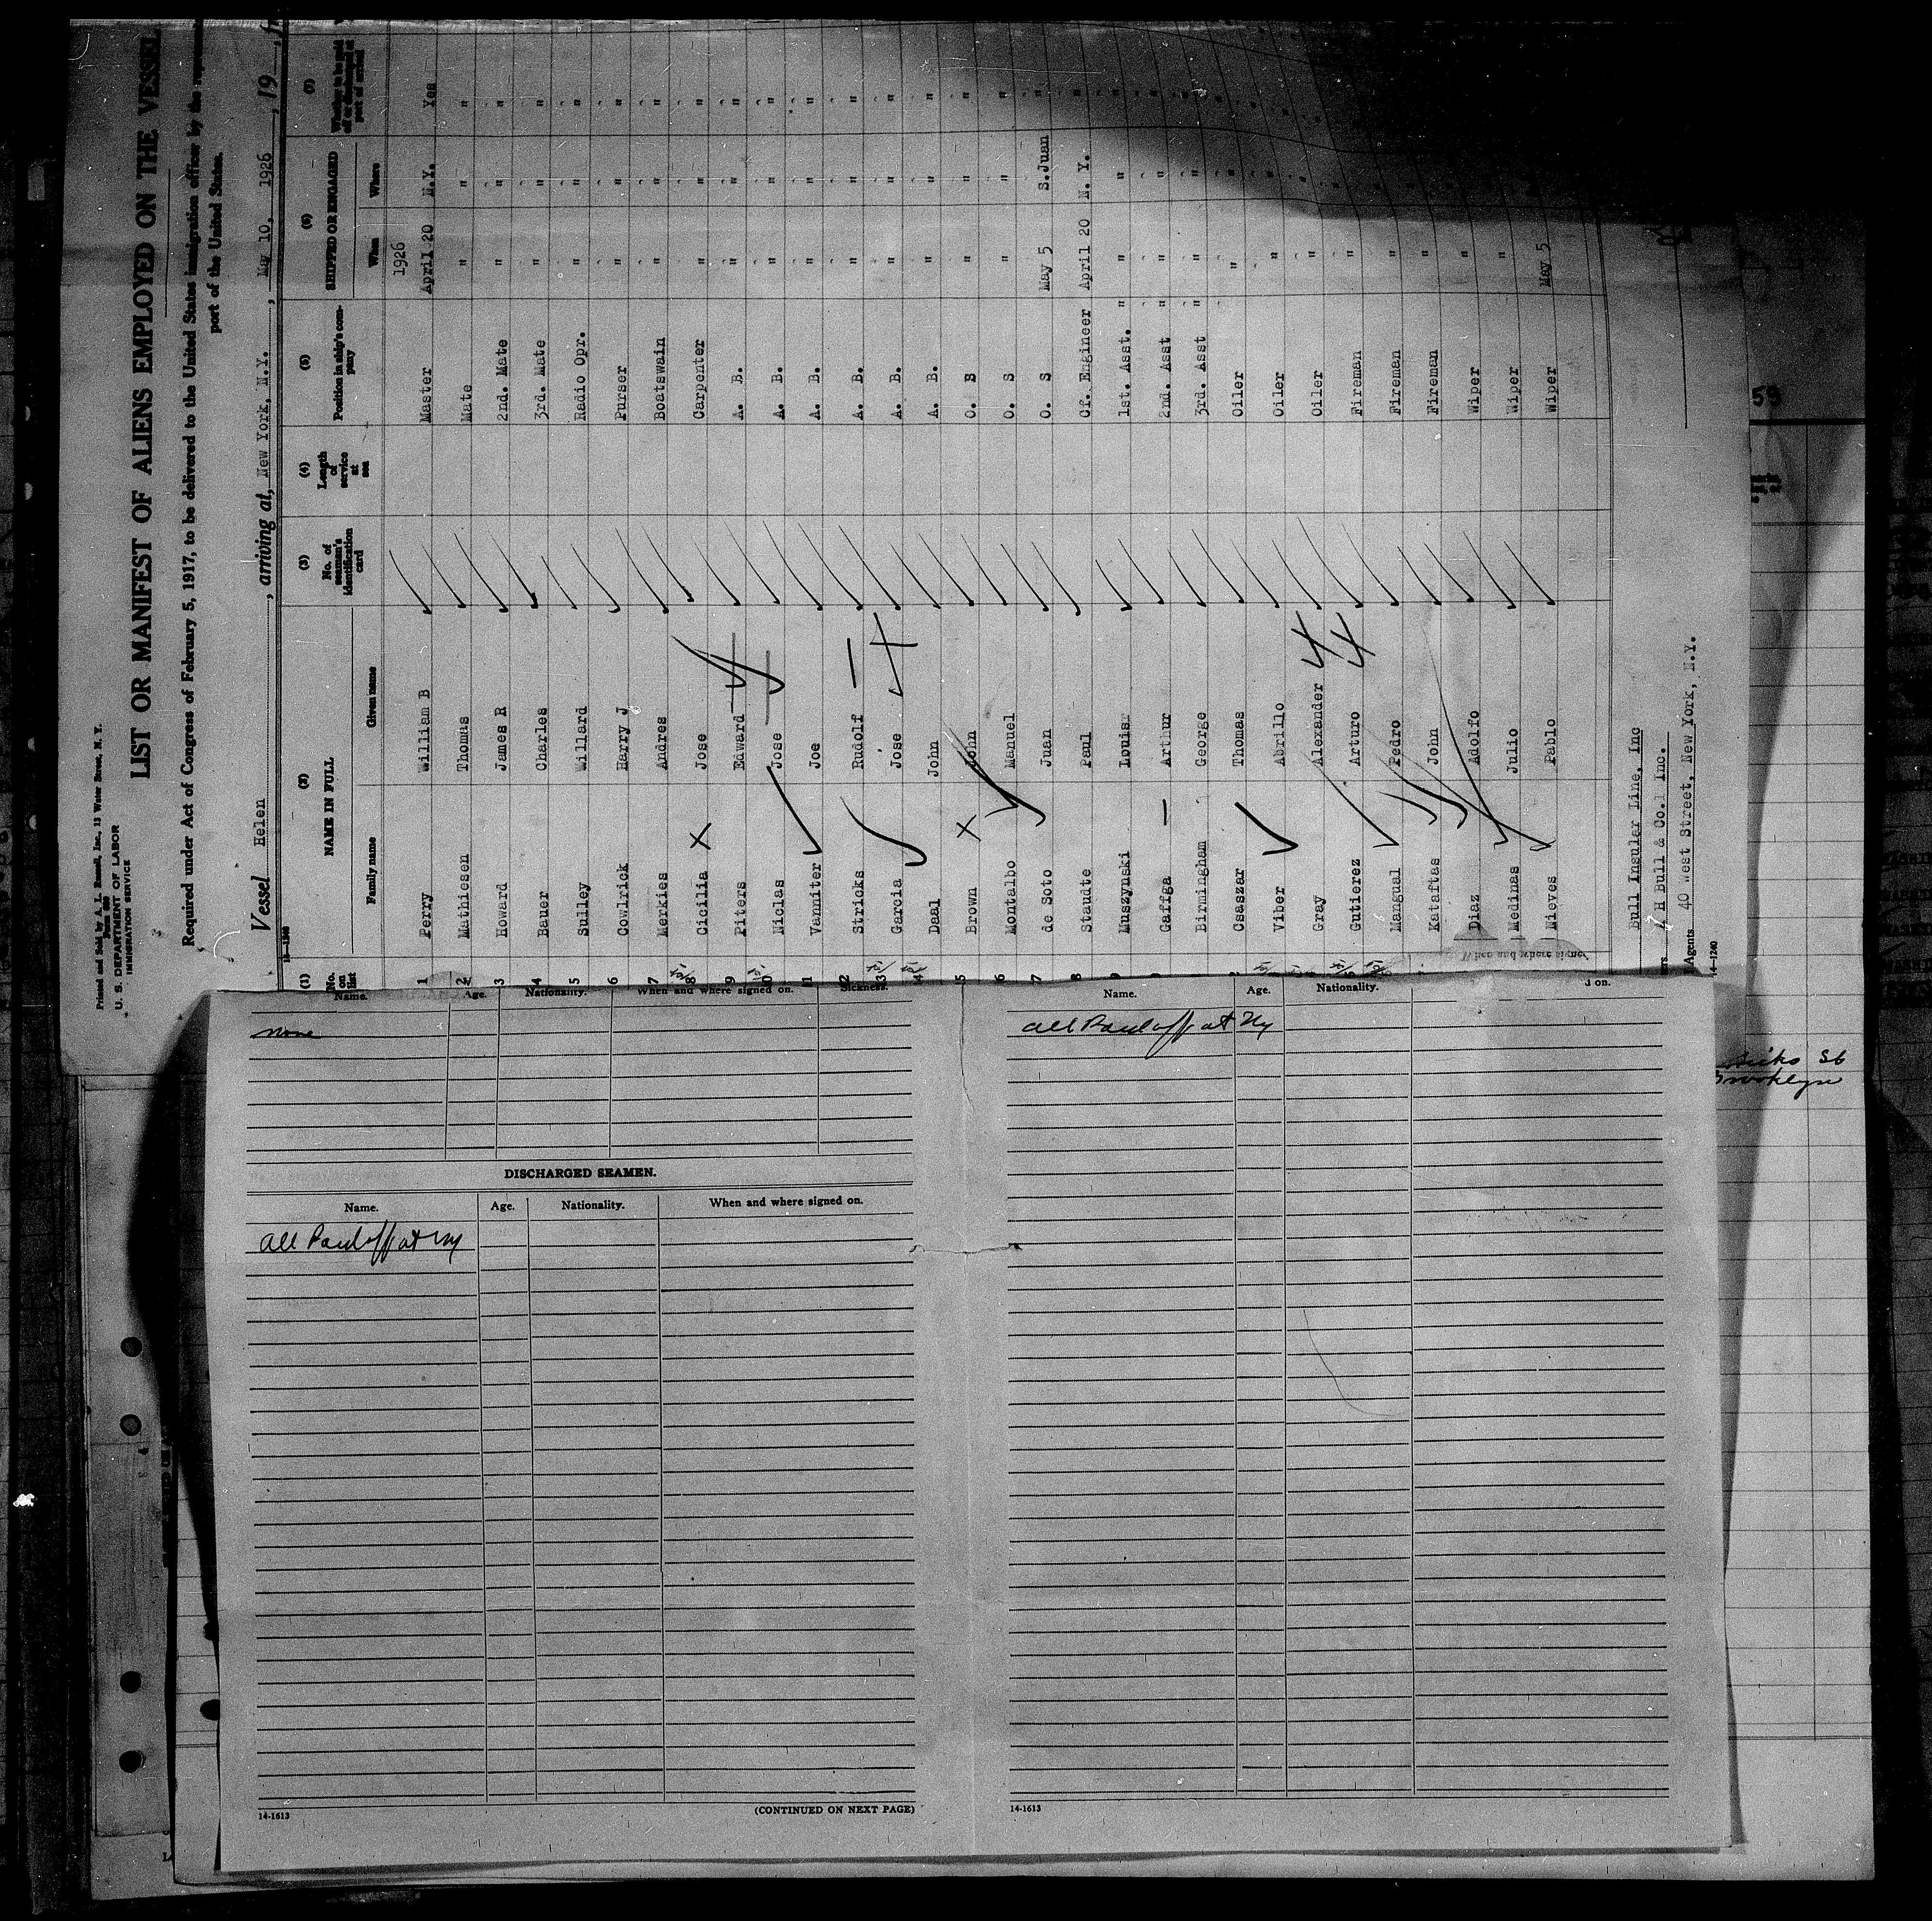 Printed and Sold by A. L. Russell, Inc., 13 Water Street, N. Y.
U. S. DEPARTMENT OF LABOR
IMMIGRATION SERVICE
LIST OR MANIFEST OF ALIENS EMPLOYED ON THE VESSEL
Required under Act of Congress of February 5, 1917, to be delivered to the United States immigration officer by the
port of the United States.
Vessel Helen, arriving at, New York, N.Y., May 10, 1926, 19
(1) (2) (3) (4) (5) (6) (7)
No. on list NAME IN FULL No. of seaman's identification card Length of service at sea Position in ship's company SHIPPED OR ENGAGED Whether to be paid off or discharged at port of arrival
Family name Given name When Where
1926
1 Perry William B Master April 20 N.Y. Yes
2 Mathiesen Thomas Mate " " "
3 Howard James R 2nd. Mate " " "
4 Bauer Charles 3rd. Mate " " "
5 Sulley Willard Radio Opr. " " "
6 Cowlrick Harry J Purser " " "
7 Merkies Andres Boatswain " " "
8 Cicilia Jose Carpenter " " "
9 Piters Edward A. B. " " "
10 Niclas Jose A. B. " " "
11 Vanniter Joe A. B. " " "
12 Stricks Rudolf A. B. " " "
13 Garcia Jose A. B. " " "
14 Daal John A. B. " " "
5 Brown John O. B " " "
6 Montalbo Manuel O. S " " "
7 de Soto Juan O. S May 5 S.Juan "
8 Staudte Paul Cf. Engineer April 20 N. Y. "
9 Muszynski Louis 1st. Asst. " " "
0 Gaffga Arthur 2nd. Asst " " "
Birmingham George 3rd. Asst " " "
2 Csaszar Thomas Oiler " " "
Viber Abrillo Oiler " " "
Gray Alexander Oiler " " "
Gutierez Arturo Fireman " " "
Mangual Pedro Fireman " "
Kataftas John Fireman " "
Diaz Adolfo Wiper "
Medinas Julio Wiper "
Nieves Pablo Wiper May 5
When and where signed
Bull Insular Line, Inc
A H Bull & Co. Inc.
Agents 40 West Street, New York, N.Y.
14-1240
59
St
Brooklyn
Name. Age. Nationality. When and where signed on. Sickness.
none
DISCHARGED SEAMEN.
Name. Age. Nationality. When and where signed on.
All Paid off at NY
14-1613
(CONTINUED ON NEXT PAGE)
Name. Age. Nationality. on.
All Paid off at NY
14-1613